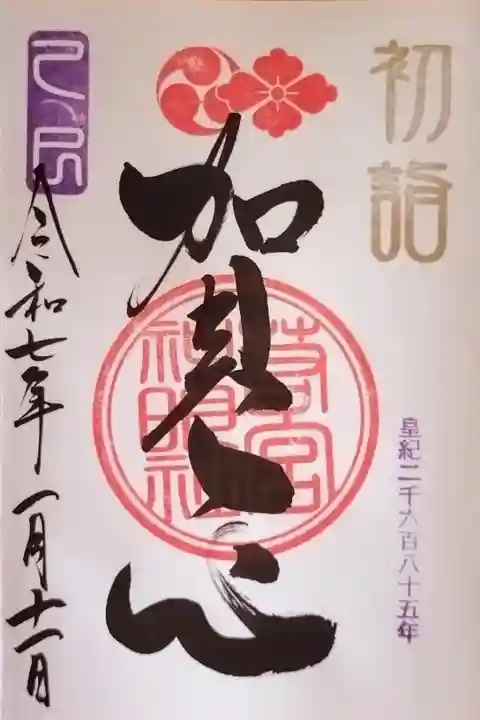 初詣
皇紀二千六百八十五年
加
心
若宮
神明社
令和七年一月十一日